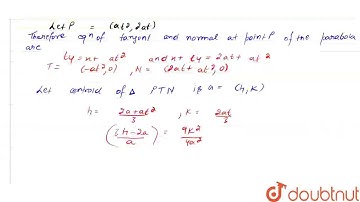 Let P = (at², 2at)
Therefore eqn of tangent and normal at point P of the parabola
are
ty = x + at² and x + ty = 2at + at²
T = (-at², 0), N = (2at + at², 0)
Let centroid of Δ PTN is a = (h, k)
h = 2a+at²/3, k = 2at/3
(3h-2a/a) = 9k²/4a²
doubtnut